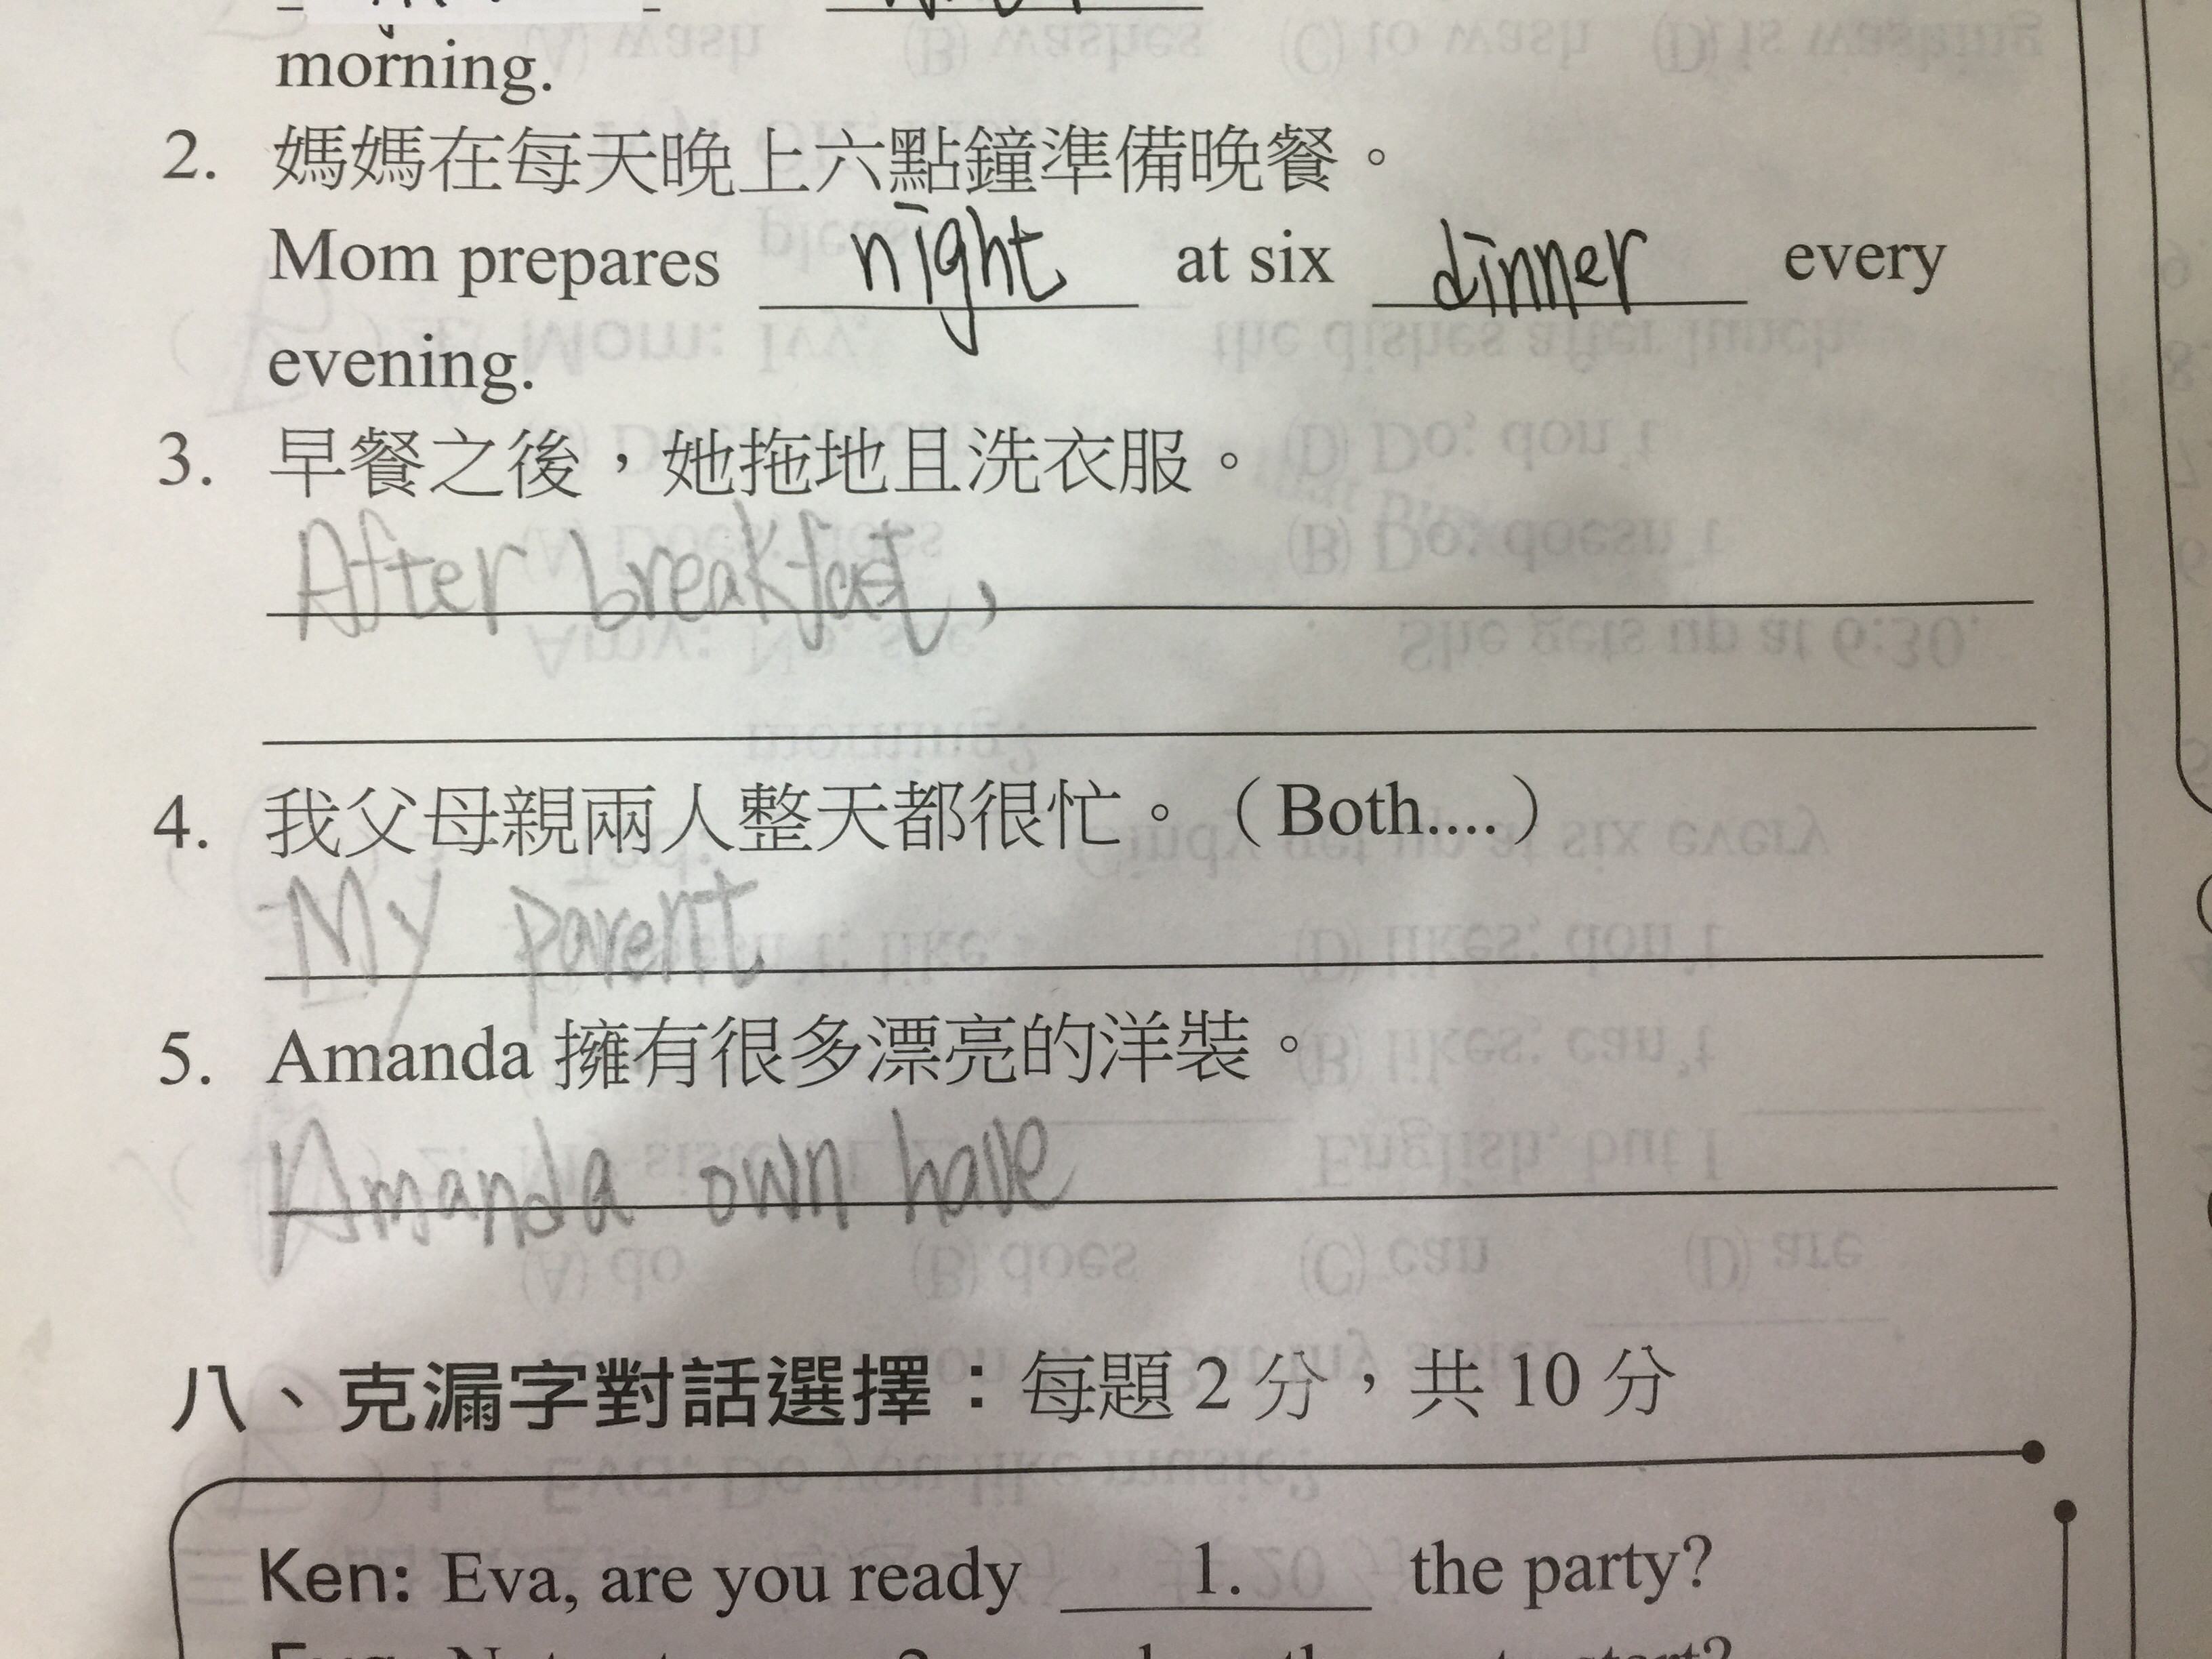 morning.
2. 媽媽在每天晚上六點鐘準備晚餐。
Mom prepares night at six dinner every
evening.
3. 早餐之後，她拖地且洗衣服。
After breakfast,
4. 我父母親兩人整天都很忙。（Both....）
My parent
5. Amanda 擁有很多漂亮的洋裝。
Amanda own have
八、克漏字對話選擇：每題 2 分，共 10 分
Ken: Eva, are you ready 1. the party?